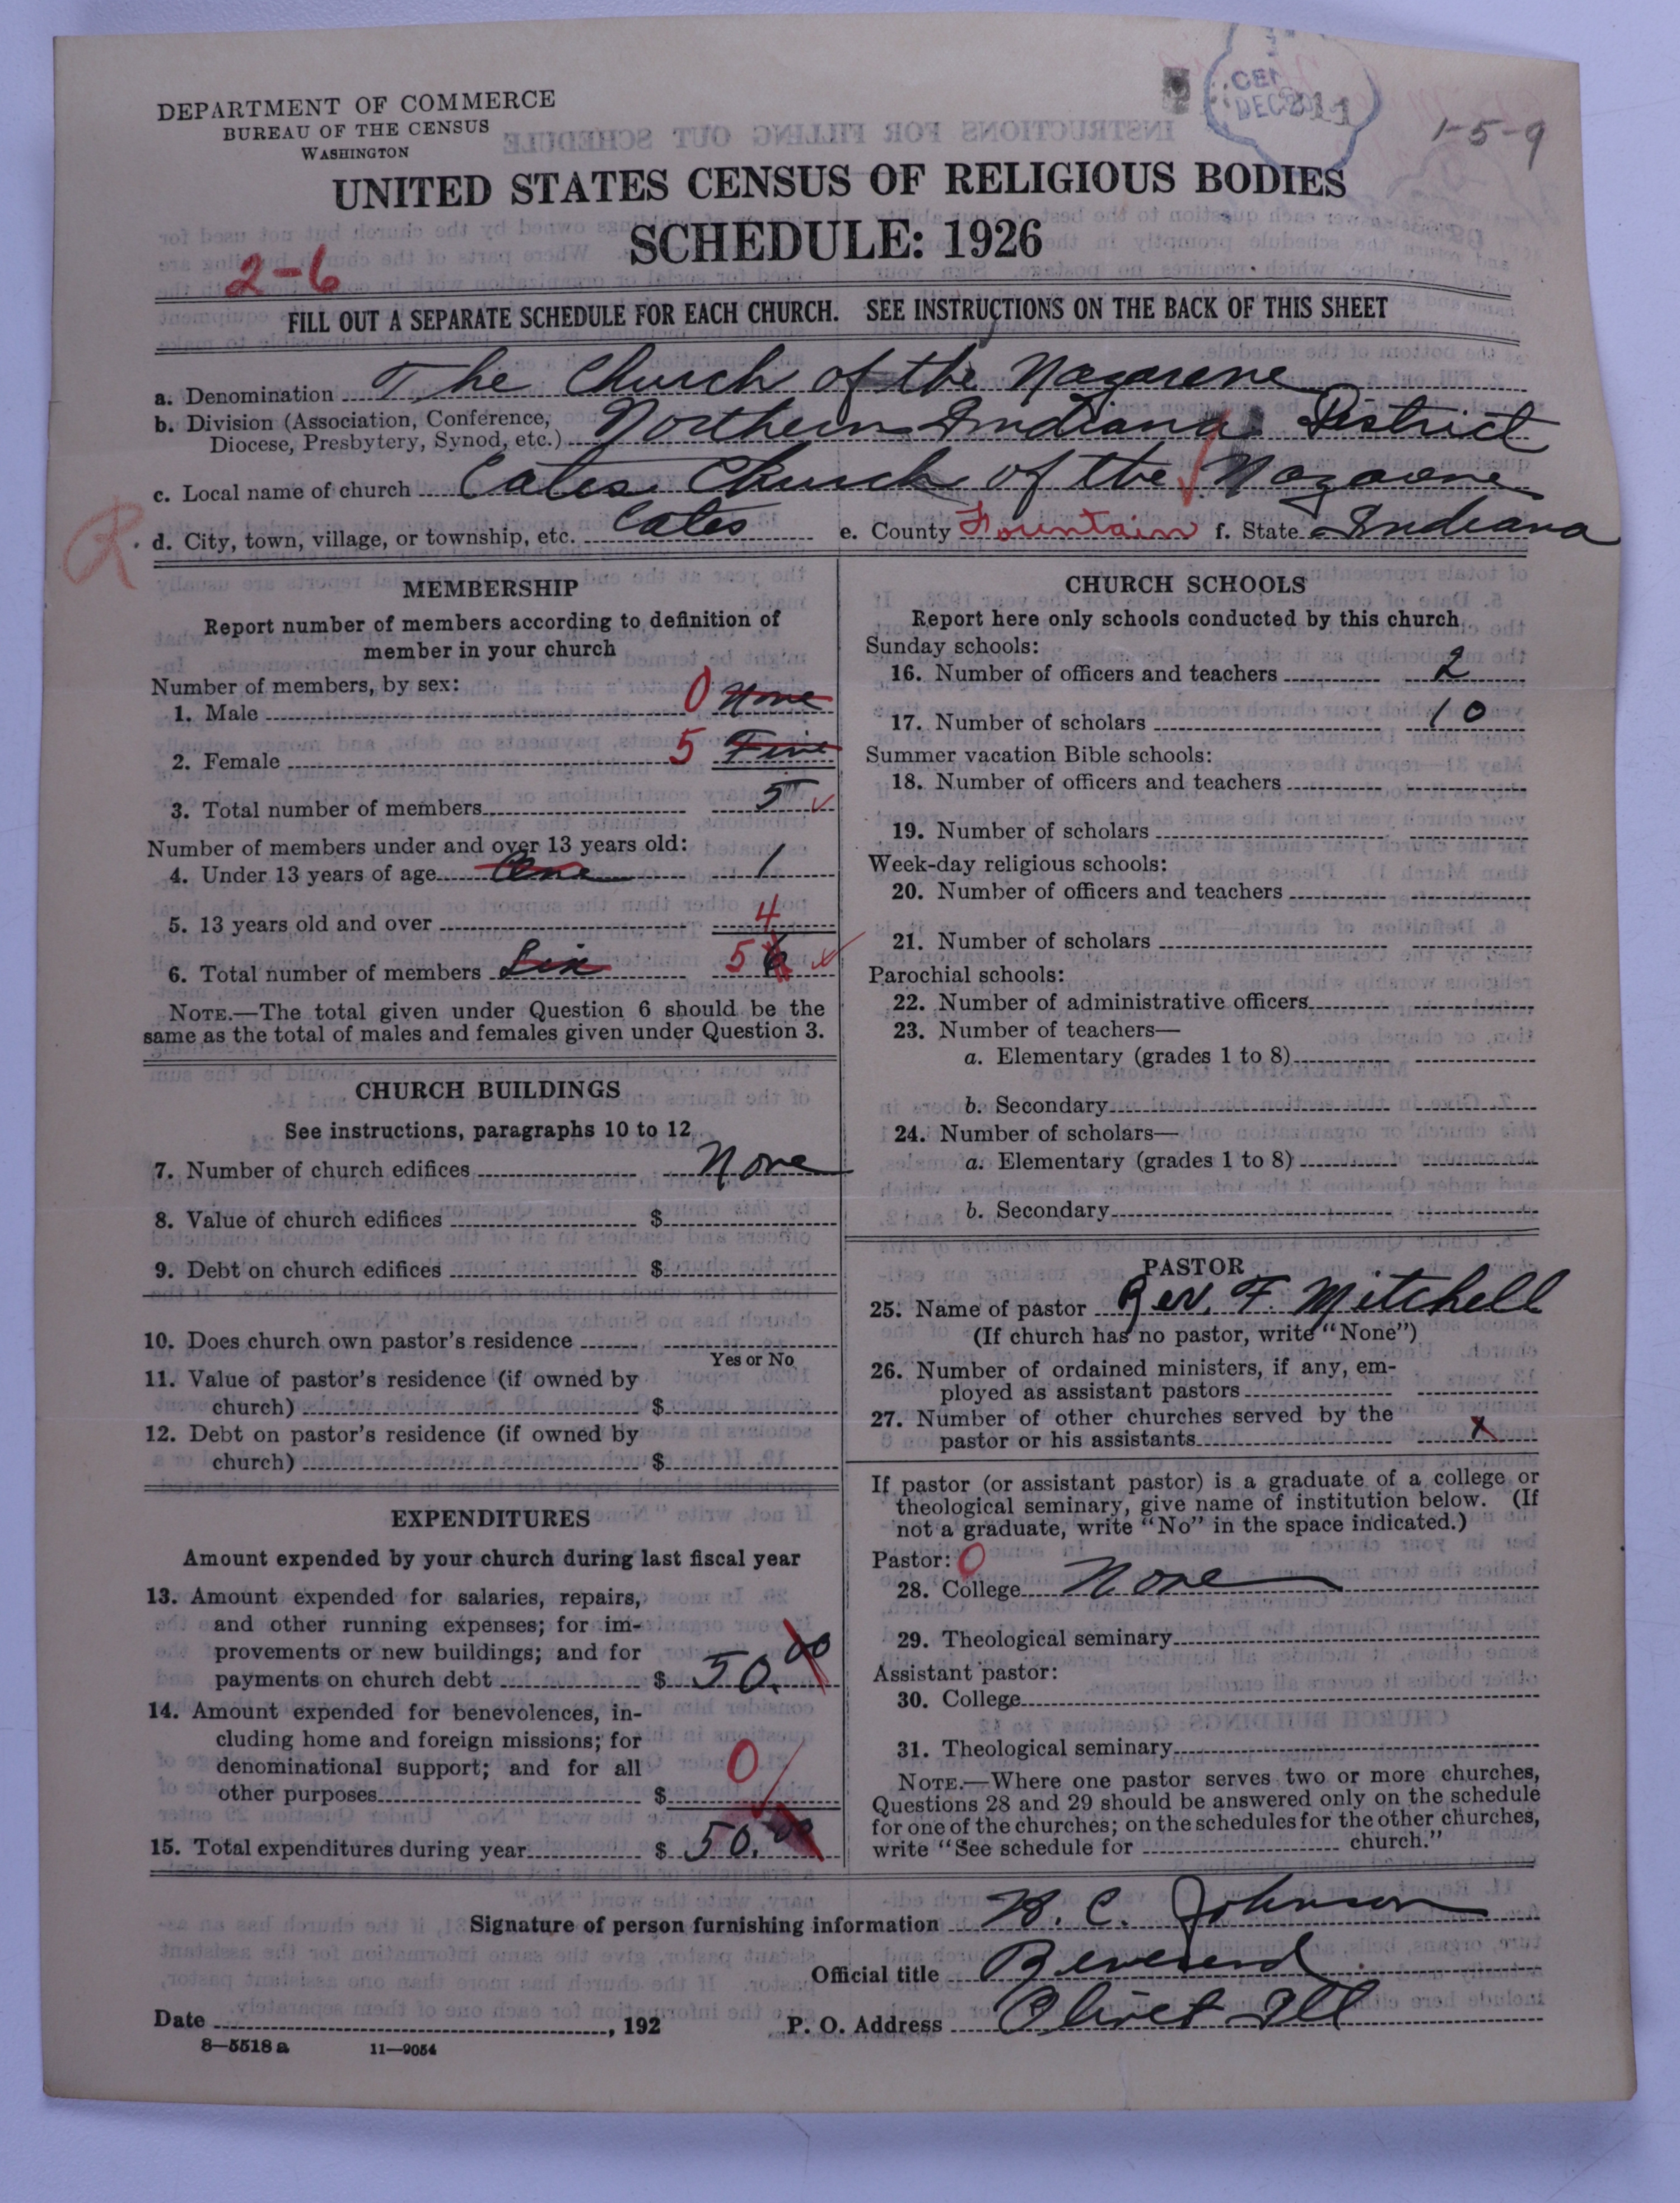 DEPARTMENT OF COMMERCE
BUREAU OF THE CENSUS
WASHINGTON
1-5-9
UNITED STATES CENSUS OF RELIGIOUS BODIES
SCHEDULE: 1926
2-6
FILL OUT A SEPARATE SCHEDULE FOR EACH CHURCH. SEE INSTRUCTIONS ON THE BACK OF THIS SHEET
a. Denomination The Church of the Nazarene
b. Division (Association, Conference,
Diocese, Presbytery, Synod, etc.) Northern Indiana District
c. Local name of church Cates Church of the Nazarene
R
d. City, town, village, or township, etc. Cates e. County Fountain f. State Indiana
MEMBERSHIP
Report number of members according to definition of
member in your church
Number of members, by sex:
1. Male 0 None
2. Female 5 Five
3. Total number of members 5
Number of members under and over 13 years old:
4. Under 13 years of age One 1
5. 13 years old and over 4
6. Total number of members Six 5 6
NOTE.—The total given under Question 6 should be the
same as the total of males and females given under Question 3.
CHURCH BUILDINGS
See instructions, paragraphs 10 to 12
7. Number of church edifices None
8. Value of church edifices $
9. Debt on church edifices $
10. Does church own pastor's residence
Yes or No
11. Value of pastor's residence (if owned by
church) $
12. Debt on pastor's residence (if owned by
church) $
EXPENDITURES
Amount expended by your church during last fiscal year
13. Amount expended for salaries, repairs,
and other running expenses; for im-
provements or new buildings; and for
payments on church debt $ 50.00
14. Amount expended for benevolences, in-
cluding home and foreign missions; for
denominational support; and for all
other purposes $ 0
15. Total expenditures during year $ 50.00
CHURCH SCHOOLS
Report here only schools conducted by this church
Sunday schools:
16. Number of officers and teachers 2
17. Number of scholars 10
Summer vacation Bible schools:
18. Number of officers and teachers
19. Number of scholars
Week-day religious schools:
20. Number of officers and teachers
21. Number of scholars
Parochial schools:
22. Number of administrative officers
23. Number of teachers—
a. Elementary (grades 1 to 8)
b. Secondary
24. Number of scholars—
a. Elementary (grades 1 to 8)
b. Secondary
PASTOR
25. Name of pastor Rev. F. Mitchell
(If church has no pastor, write "None")
26. Number of ordained ministers, if any, em-
ployed as assistant pastors
27. Number of other churches served by the
pastor or his assistants x
If pastor (or assistant pastor) is a graduate of a college or
theological seminary, give name of institution below. (If
not a graduate, write "No" in the space indicated.)
Pastor: 0
28. College None
29. Theological seminary
Assistant pastor:
30. College
31. Theological seminary
NOTE.—Where one pastor serves two or more churches,
Questions 28 and 29 should be answered only on the schedule
for one of the churches; on the schedules for the other churches,
write "See schedule for church."
Signature of person furnishing information C. Johnson
Official title Reverend
Date , 192 P. O. Address Olivet Ill
8—5518 a 11—9054